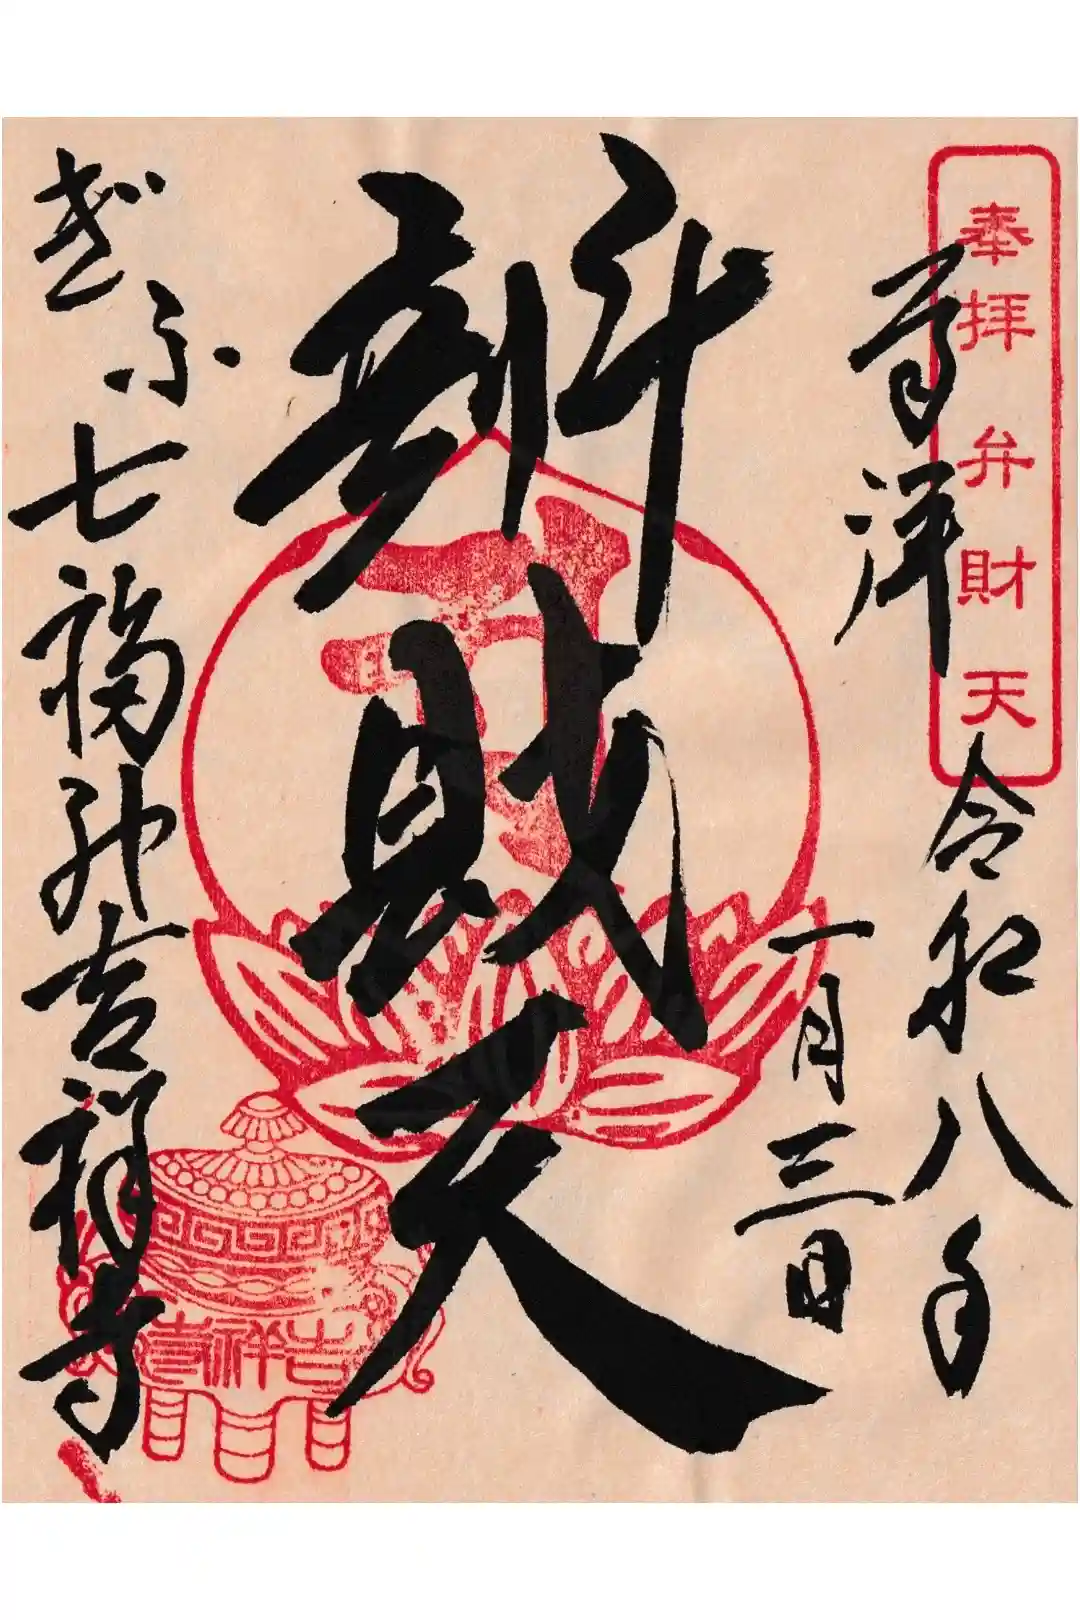 奉拝 弁財天
奉拝
令和八年
一月三日
辨財天
ぎふ七福神吉祥寺
吉祥寺